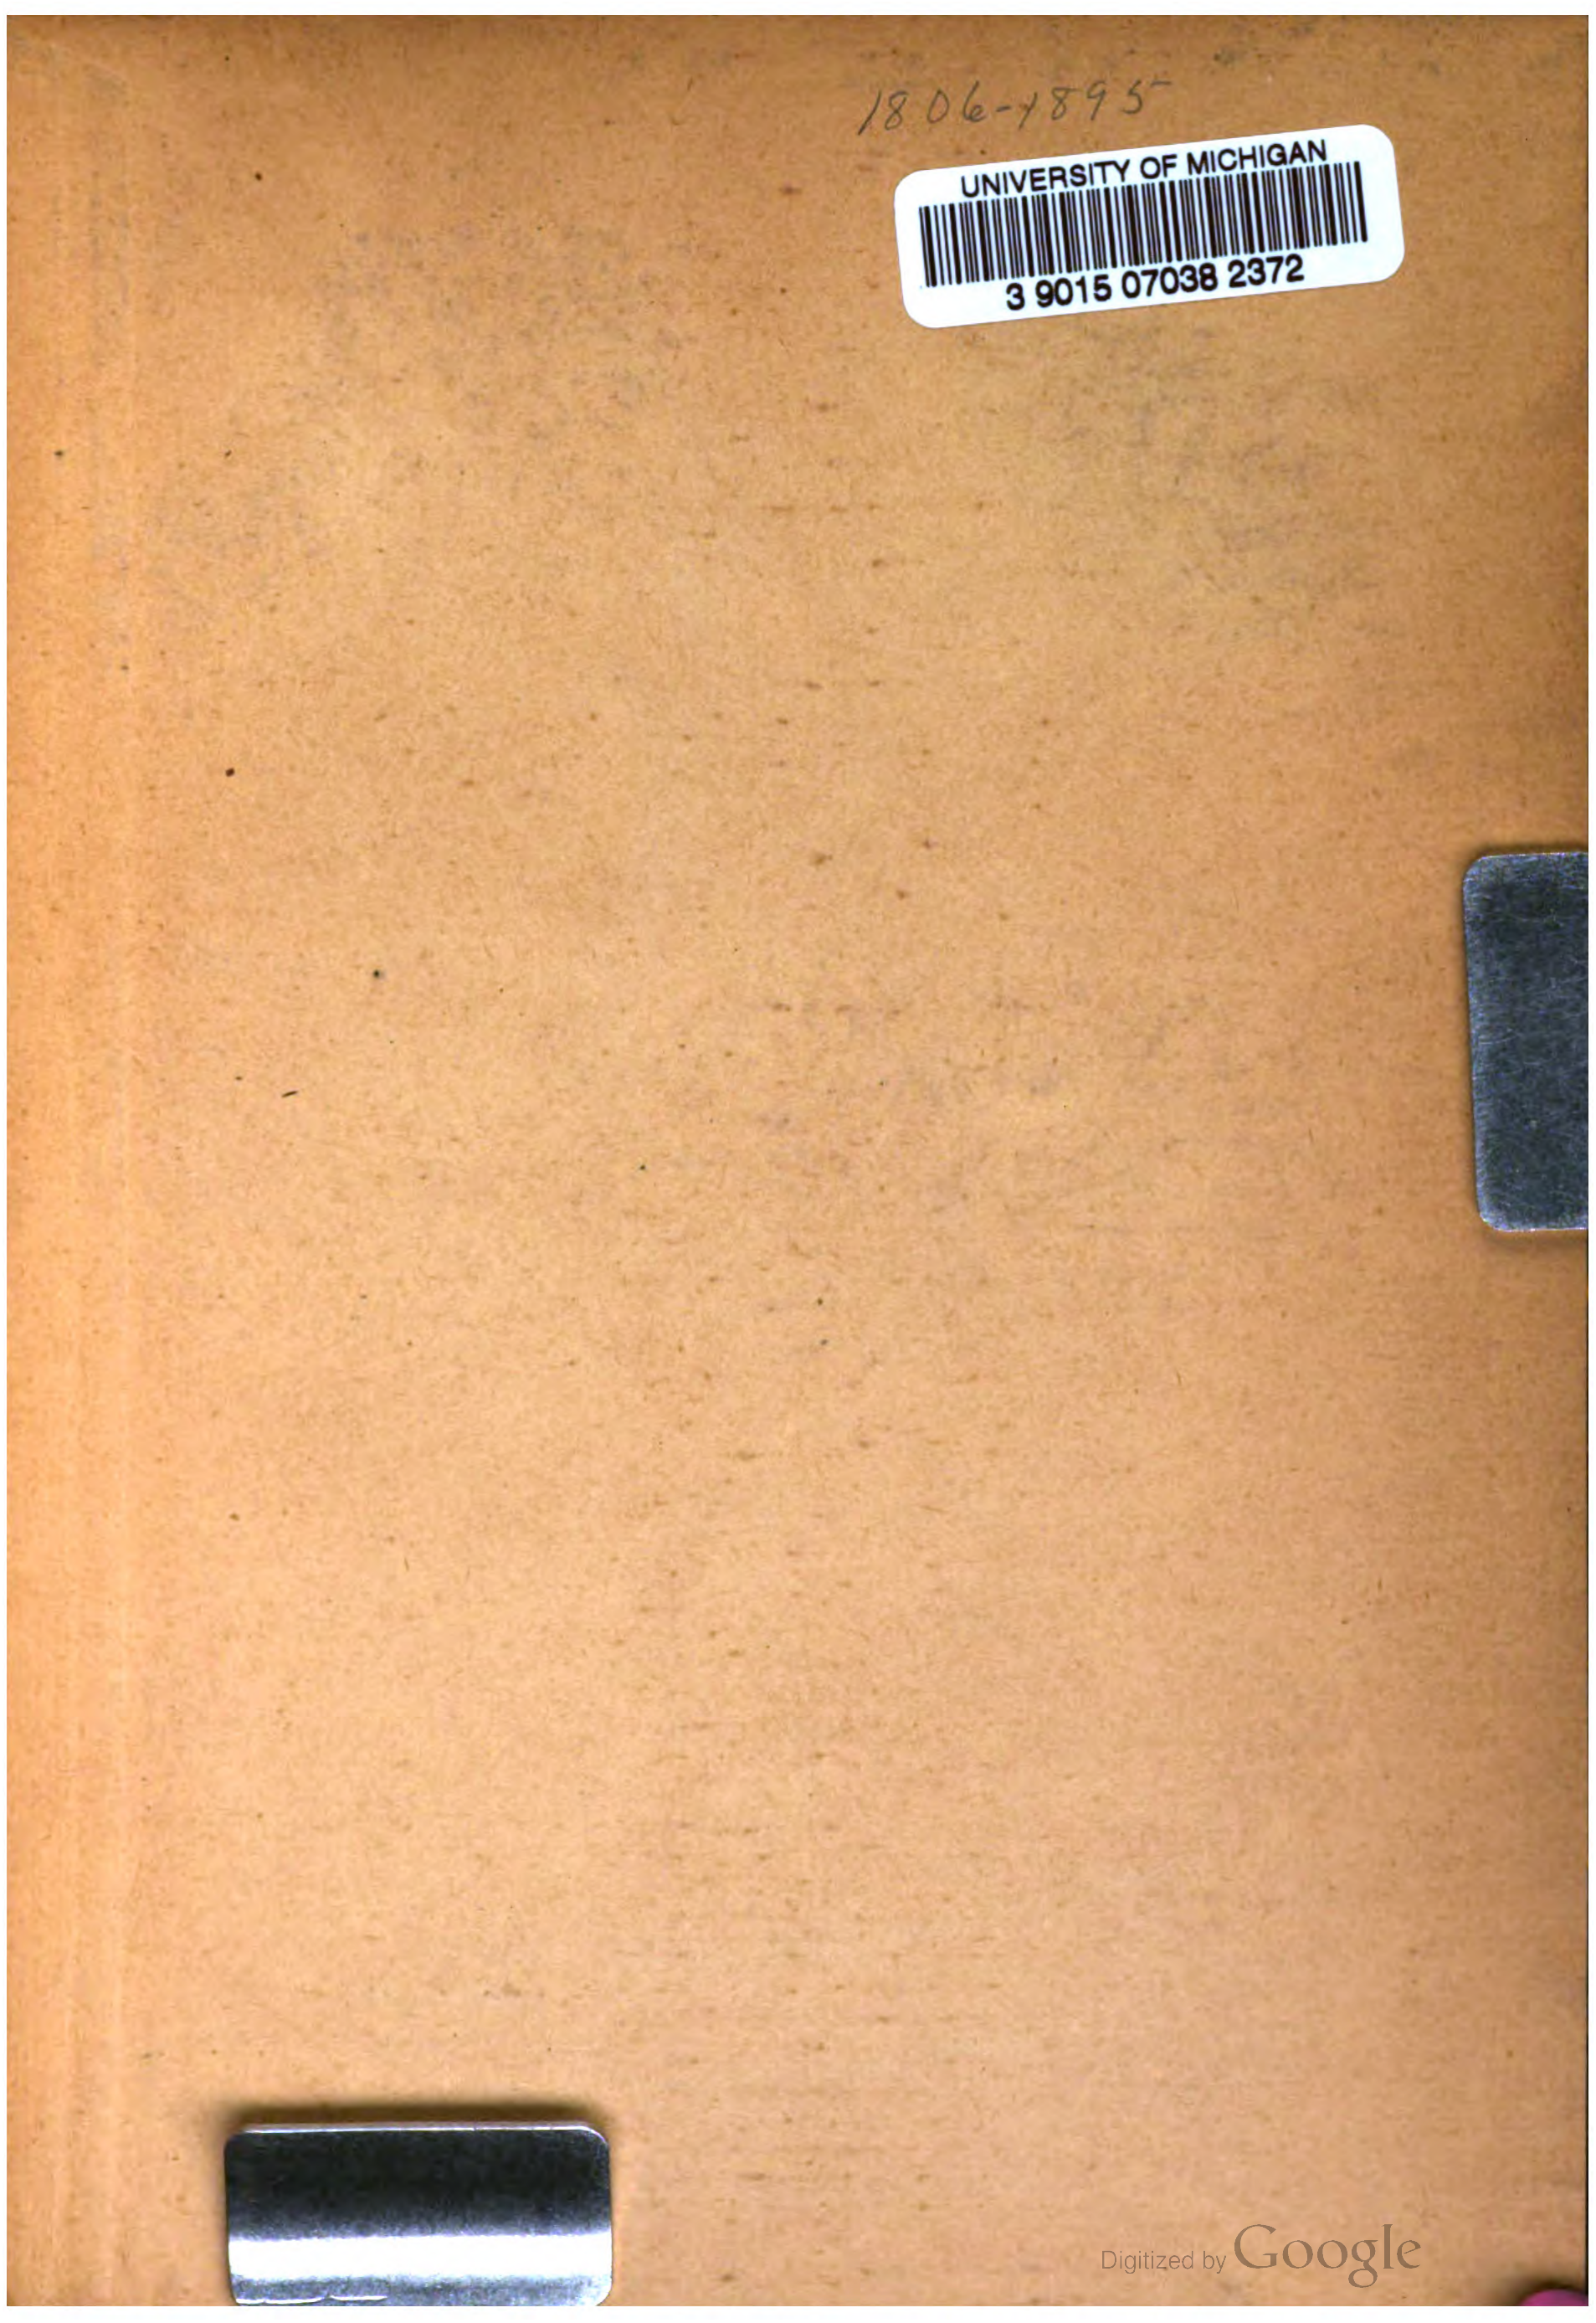 1806-1895
UNIVERSITY OF MICHIGAN
3 9015 07038 2372
Digitized by Google